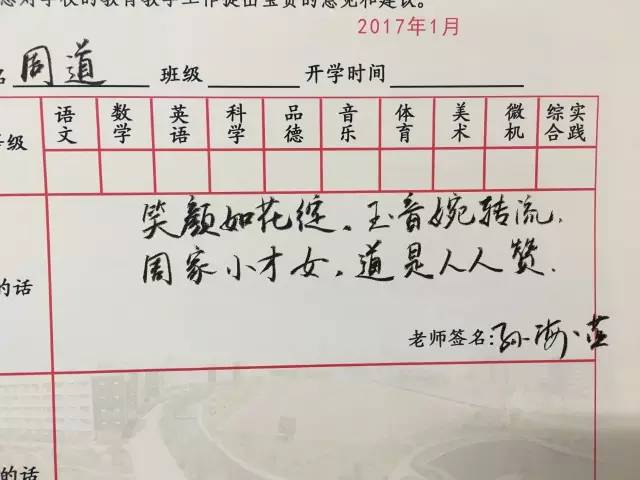 您对学校的教育教学工作提出宝贵的意见和建议。
2017年1月
名 周道 班级 开学时间
语文 数学 英语 科学 品德 音乐 体育 美术 微机 综合实践
等级
笑颜如花绽、玉音婉转流,
周家小才女,道是人人赞.
的话
老师签名:孙海燕
的话